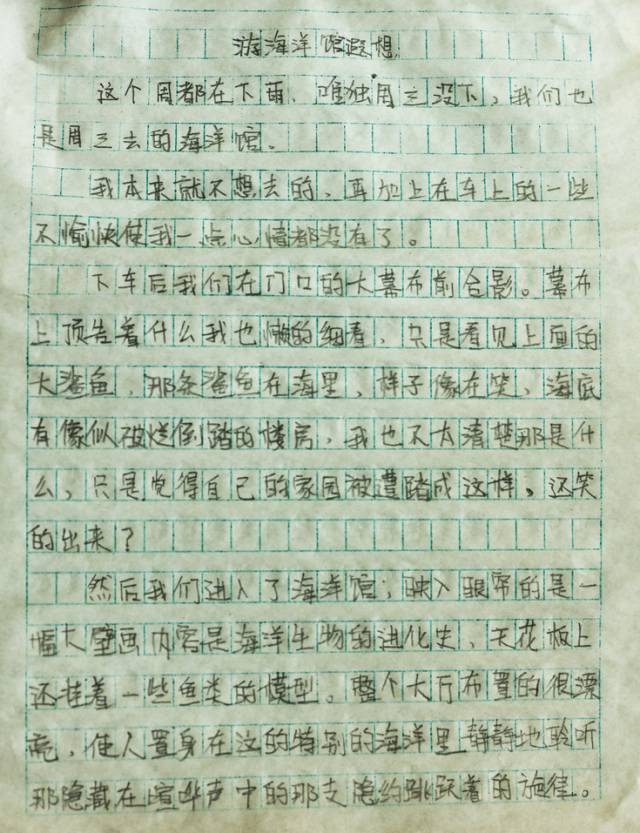 游海洋馆遐想
这个周都在下雨、唯独周三没下，我们也
是周三去的海洋馆。
我本来就不想去的，再加上在车上的一些
不愉快使我一点心情都没有了。
下车后我们在门口的大幕布前合影。幕布
上预告着什么我也懒的细看，只是看见上面的
大鲨鱼，那条鲨鱼在海里，样子像在笑，海底
有像似破烂倒踏的楼房，我也不太清楚那是什
么，只是觉得自己的家园被遭踏成这样，还笑
的出来？
然后我们进入了海洋馆；映入眼帘的是一
幅大壁画内容是海洋生物的进化史，天花板上
还挂着一些鱼类的模型。整个大厅布置的很漂
亮，使人置身在这的特别的海洋里静静地聆听
那隐藏在喧哗声中的那支隐约跳跃着的旋律。